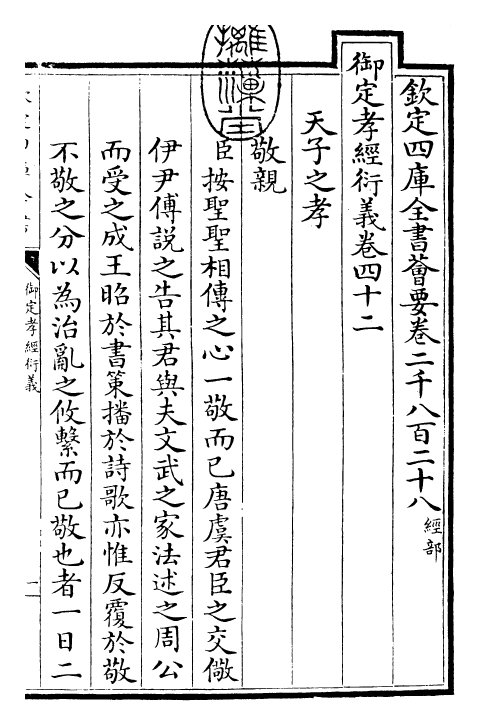 欽定四庫全書薈要卷二千八百二十八 經部
御定孝經衍義卷四十二
天子之孝
敬親
臣按聖聖相傳之心一敬而已唐虞君臣之交儆
伊尹傅說之告其君與夫文武之家法述之周公
而受之成王昭於書策播於詩歌亦惟反覆於敬
不敬之分以為治亂之攸繫而已敬也者一日二
御定孝經衍義
一